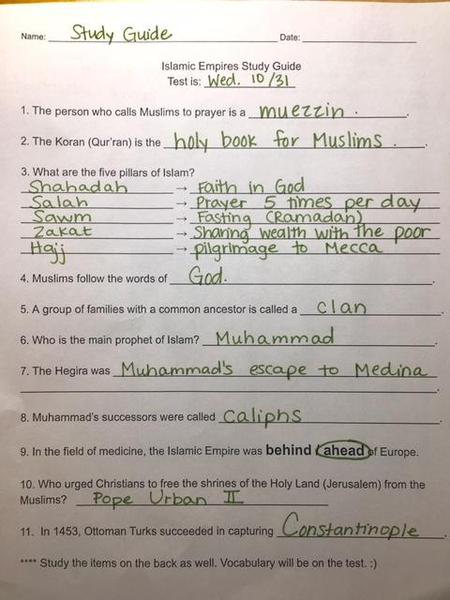 Name: Study Guide Date:
Islamic Empires Study Guide
Test is: Wed. 10/31
1. The person who calls Muslims to prayer is a muezzin.
2. The Koran (Qur'ran) is the holy book for Muslims.
3. What are the five pillars of Islam?
Shahadah → Faith in God
Salah → Prayer 5 times per day
Sawm → Fasting (Ramadan)
Zakat → Sharing wealth with the poor
Hajj → pilgrimage to Mecca
4. Muslims follow the words of God.
5. A group of families with a common ancestor is called a clan.
6. Who is the main prophet of Islam? Muhammad
7. The Hegira was Muhammad's escape to Medina
8. Muhammad's successors were called caliphs
9. In the field of medicine, the Islamic Empire was behind / ahead of Europe.
10. Who urged Christians to free the shrines of the Holy Land (Jerusalem) from the
Muslims? Pope Urban II
11. In 1453, Ottoman Turks succeeded in capturing Constantinople.
**** Study the items on the back as well. Vocabulary will be on the test. :)